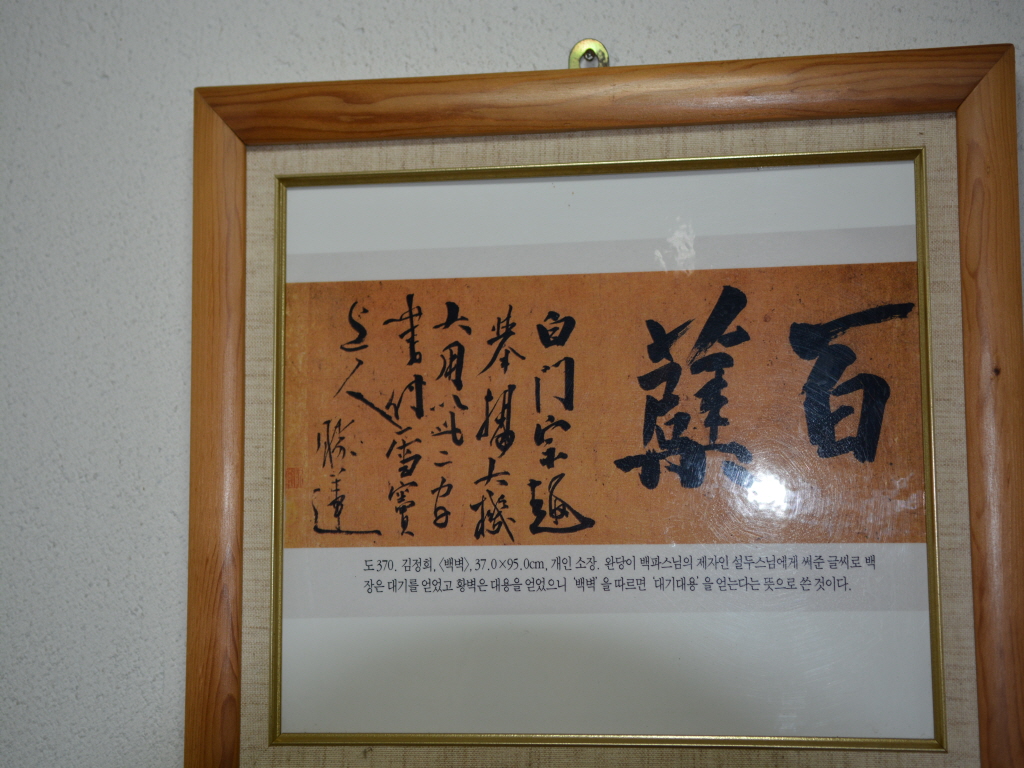 百蘗
白門宗趣
擧揚大機
大用以此二字
書付雪竇
上人
勝蓮
도370. 김정희, 〈백벽〉, 37.0×95.0cm, 개인 소장. 완당이 백파스님의 제자인 설두스님에게 써준 글씨로 백
장은 대기를 얻었고 황벽은 대용을 얻었으니 '백벽'을 따르면 '대기대용'을 얻는다는 뜻으로 쓴 것이다.